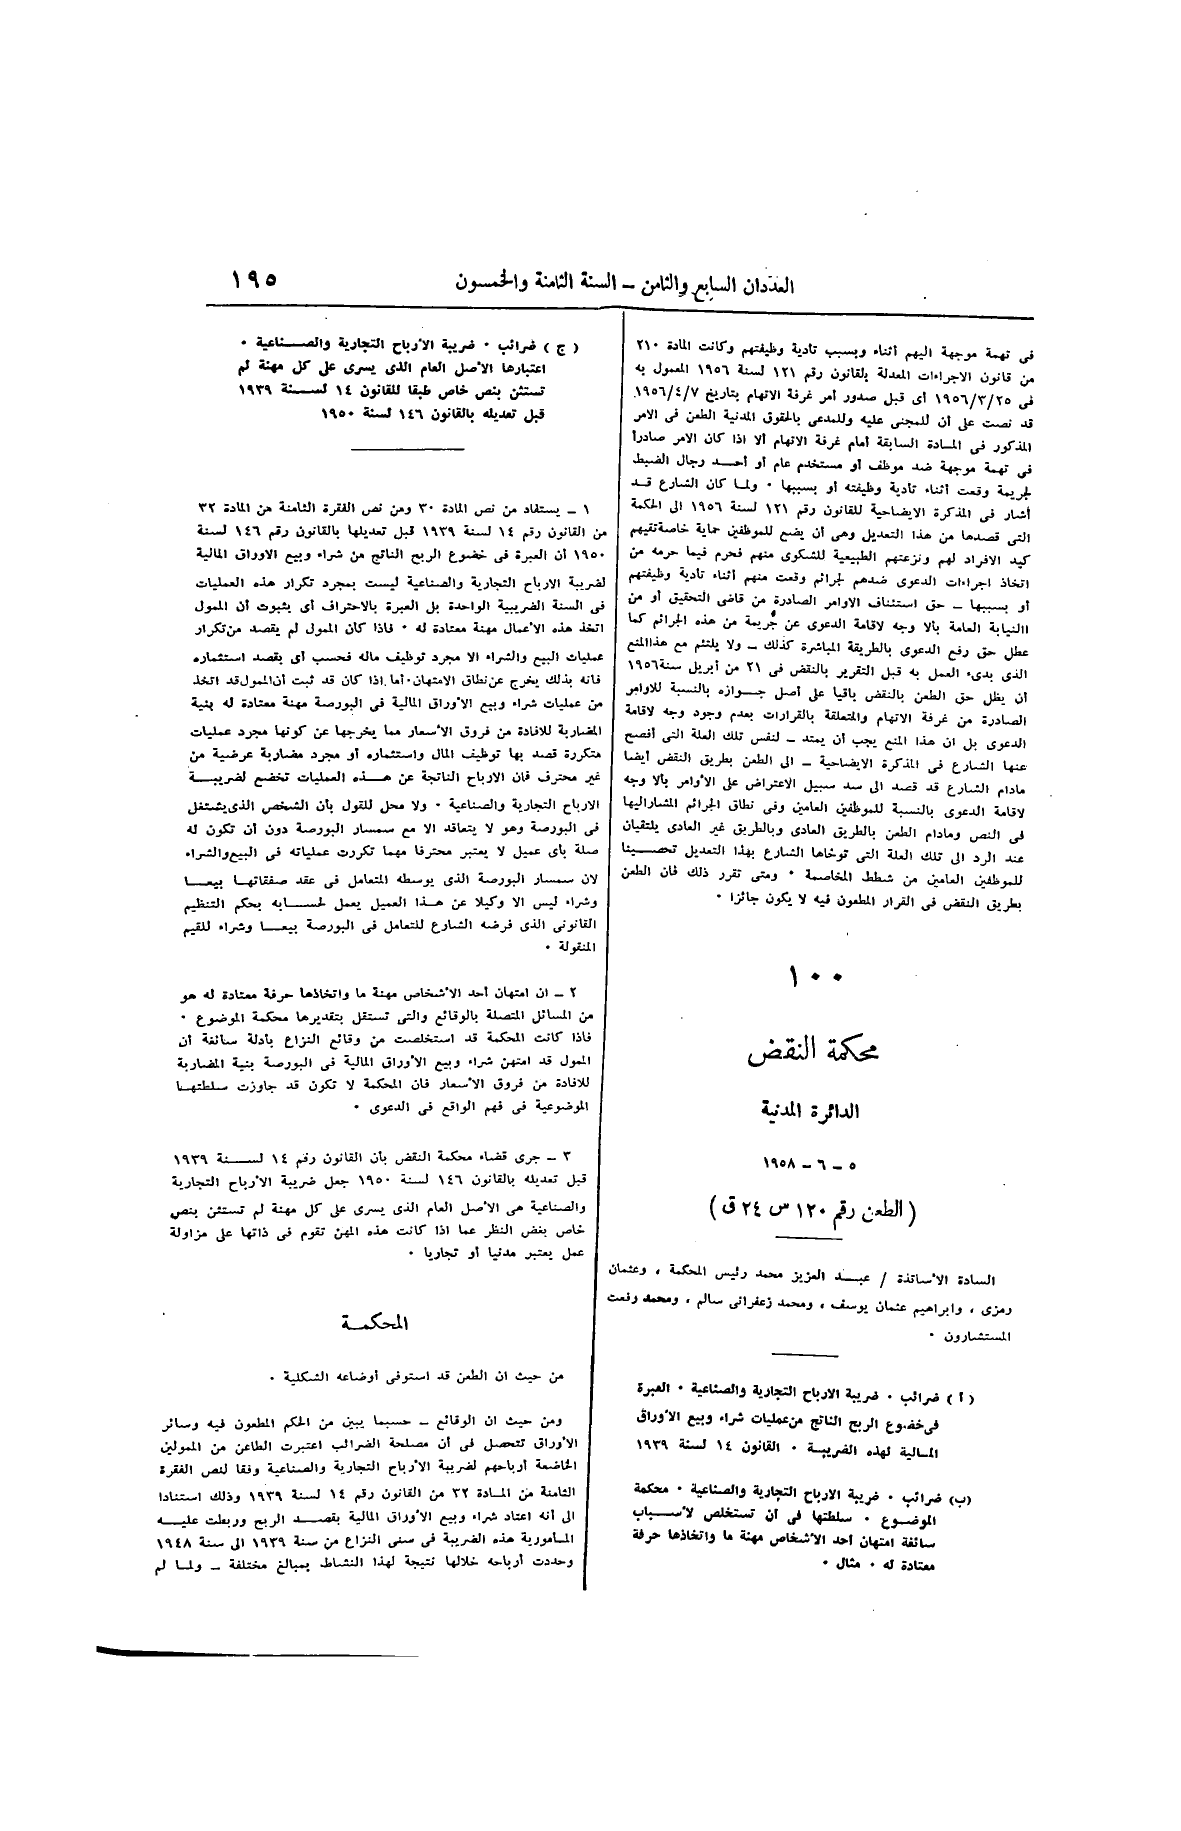 العددان السابع والثامن – السنة الثامنة والخمسون
١٩٥
فى تهمة موجهة اليهم أثناء وبسبب تأدية وظيفتهم وكانت المادة ٢١٠
من قانون الاجراءات المعدلة بالقانون رقم ١٢١ لسنة ١٩٥٦ المعمول به
فى ١٩٥٦/٣/٢٥ أى قبل صدور أمر غرفة الاتهام بتاريخ ١٩٥٦/٤/٧
قد نصت على أن للمجنى عليه وللمدعى بالحقوق المدنية الطعن فى الامر
المذكور فى المادة السابقة أمام غرفة الاتهام ألا اذا كان الامر صادرا
فى تهمة موجهة ضد موظف أو مستخدم عام أو أحد رجال الضبط
لجريمة وقعت أثناء تأدية وظيفته أو بسببها ٠ ولما كان الشارع قد
أشار فى المذكرة الايضاحية للقانون رقم ١٢١ لسنة ١٩٥٦ الى الحكمة
التى قصدها من هذا التعديل وهى أن يضع للموظفين حماية خاصة تقيهم
كيد الافراد لهم ونزعتهم الطبيعية للشكوى منهم فحرم فيما حرمه من
اتخاذ اجراءات الدعوى ضدهم لجرائم وقعت منهم أثناء تأدية وظيفتهم
أو بسببها – حق استئناف الاوامر الصادرة من قاضى التحقيق أو من
االنيابة العامة بألا وجه لاقامة الدعوى عن جريمة من هذه الجرائم كما
عطل حق رفع الدعوى بالطريقة المباشرة كذلك – ولا يلتئم مع هذا المنع
الذى بدىء العمل به قبل التقرير بالنقض فى ٢١ من أبريل سنة ١٩٥٦
أن يظل حق الطعن بالنقض باقيا على أصل جوازه بالنسبة للاوامر
الصادرة من غرفة الاتهام والمتعلقة بالقرارات بعدم وجود وجه لاقامة
الدعوى بل ان هذا المنع يجب أن يمتد – لنفس تلك العلة التى أفصح
عنها الشارع فى المذكرة الايضاحية – الى الطعن بطريق النقض أيضا
مادام الشارع قد قصد الى سد سبيل الاعتراض على الأوامر بألا وجه
لاقامة الدعوى بالنسبة للموظفين العامين وفى نطاق الجرائم المشار اليها
فى النص ومادام الطعن بالطريق العادى وبالطريق غير العادى يلتقيان
عند الرد الى تلك العلة التى توخاها الشارع بهذا التعديل تحصينا
للموظفين العامين من شطط المخاصمة ٠ ومتى تقرر ذلك فان الطعن
بطريق النقض فى القرار المطعون فيه لا يكون جائزا ٠
١٠٠
محكمة النقض
الدائرة المدنية
٥ – ٦ – ١٩٥٨
( الطعن رقم ١٢٠ س ٢٤ ق )
السادة الأساتذة / عبد العزيز محمد رئيس المحكمة ، وعثمان
رمزى ، وابراهيم عثمان يوسف ، ومحمد زعفرانى سالم ، ومحمد رفعت
المستشارون ٠
( أ ) ضرائب ٠ ضريبة الارباح التجارية والصناعية ٠ العبرة
فى خضوع الربح الناتج من عمليات شراء وبيع الأوراق
المالية لهذه الضريبة ٠ القانون ١٤ لسنة ١٩٣٩
(ب) ضرائب ٠ ضريبة الارباح التجارية والصناعية ٠ محكمة
الموضوع ٠ سلطتها فى أن تستخلص لأسباب
سائغة امتهان أحد الأشخاص مهنة ما واتخاذها حرفة
معتادة له ٠ مثال ٠
( ج ) ضرائب ٠ ضريبة الأرباح التجارية والصناعية ٠
اعتبارها الأصل العام الذى يسرى على كل مهنة لم
تستثن بنص خاص طبقا للقانون ١٤ لسنة ١٩٣٩
قبل تعديله بالقانون ١٤٦ لسنة ١٩٥٠
١ – يستفاد من نص المادة ٣٠ ومن نص الفقرة الثامنة من المادة ٣٢
من القانون رقم ١٤ لسنة ١٩٣٩ قبل تعديلها بالقانون رقم ١٤٦ لسنة
١٩٥٠ أن العبرة فى خضوع الربح الناتج من شراء وبيع الاوراق المالية
لضريبة الارباح التجارية والصناعية ليست بمجرد تكرار هذه العمليات
فى السنة الضريبية الواحدة بل العبرة بالاحتراف أى بثبوت أن الممول
اتخذ هذه الأعمال مهنة معتادة له ٠ فاذا كان الممول لم يقصد من تكرار
عمليات البيع والشراء الا مجرد توظيف ماله فحسب أى بقصد استثماره
فانه بذلك يخرج عن نطاق الامتهان ٠ أما اذا كان قد ثبت أن الممول قد اتخذ
من عمليات شراء وبيع الأوراق المالية فى البورصة مهنة معتادة له بنية
المضاربة للافادة من فروق الأسعار مما يخرجها عن كونها مجرد عمليات
متكررة قصد بها توظيف المال واستثماره أو مجرد مضاربة عرضية من
غير محترف فان الارباح الناتجة عن هذه العمليات تخضع لضريبة
الارباح التجارية والصناعية ٠ ولا محل للقول بأن الشخص الذى يشتغل
فى البورصة وهو لا يتعاقد الا مع سمسار البورصة دون أن تكون له
صلة بأى عميل لا يعتبر محترفا مهما تكررت عملياته فى البيع والشراء
لان سمسار البورصة الذى يوسطه المتعامل فى عقد صفقاتها بيعا
وشراء ليس الا وكيلا عن هذا العميل يعمل لحسابه بحكم التنظيم
القانونى الذى فرضه الشارع للتعامل فى البورصة بيعا وشراء للقيم
المنقولة ٠
٢ – ان امتهان أحد الأشخاص مهنة ما واتخاذها حرفة معتادة له هو
من المسائل المتصلة بالوقائع والتى تستقل بتقديرها محكمة الموضوع ٠
فاذا كانت المحكمة قد استخلصت من وقائع النزاع بأدلة سائغة أن
الممول قد امتهن شراء وبيع الأوراق المالية فى البورصة بنية المضاربة
للافادة من فروق الأسعار فان المحكمة لا تكون قد جاوزت سلطتها
الموضوعية فى فهم الواقع فى الدعوى ٠
٣ – جرى قضاء محكمة النقض بأن القانون رقم ١٤ لسنة ١٩٣٩
قبل تعديله بالقانون ١٤٦ لسنة ١٩٥٠ جعل ضريبة الأرباح التجارية
والصناعية هى الأصل العام الذى يسرى على كل مهنة لم تستثن بنص
خاص بغض النظر عما اذا كانت هذه المهن تقوم فى ذاتها على مزاولة
عمل يعتبر مدنيا أو تجاريا ٠
المحكمة
من حيث ان الطعن قد استوفى أوضاعه الشكلية ٠
ومن حيث ان الوقائع – حسبما يبين من الحكم المطعون فيه وسائر
الأوراق تتحصل فى أن مصلحة الضرائب اعتبرت الطاعن من الممولين
الخاضعة أرباحهم لضريبة الأرباح التجارية والصناعية وفقا لنص الفقرة
الثامنة من المادة ٣٢ من القانون رقم ١٤ لسنة ١٩٣٩ وذلك استنادا
الى أنه اعتاد شراء وبيع الأوراق المالية بقصد الربح وربطت عليه
المأمورية هذه الضريبة فى سنى النزاع من سنة ١٩٣٩ الى سنة ١٩٤٨
وحددت أرباحه خلالها نتيجة لهذا النشاط بمبالغ مختلفة – ولما لم